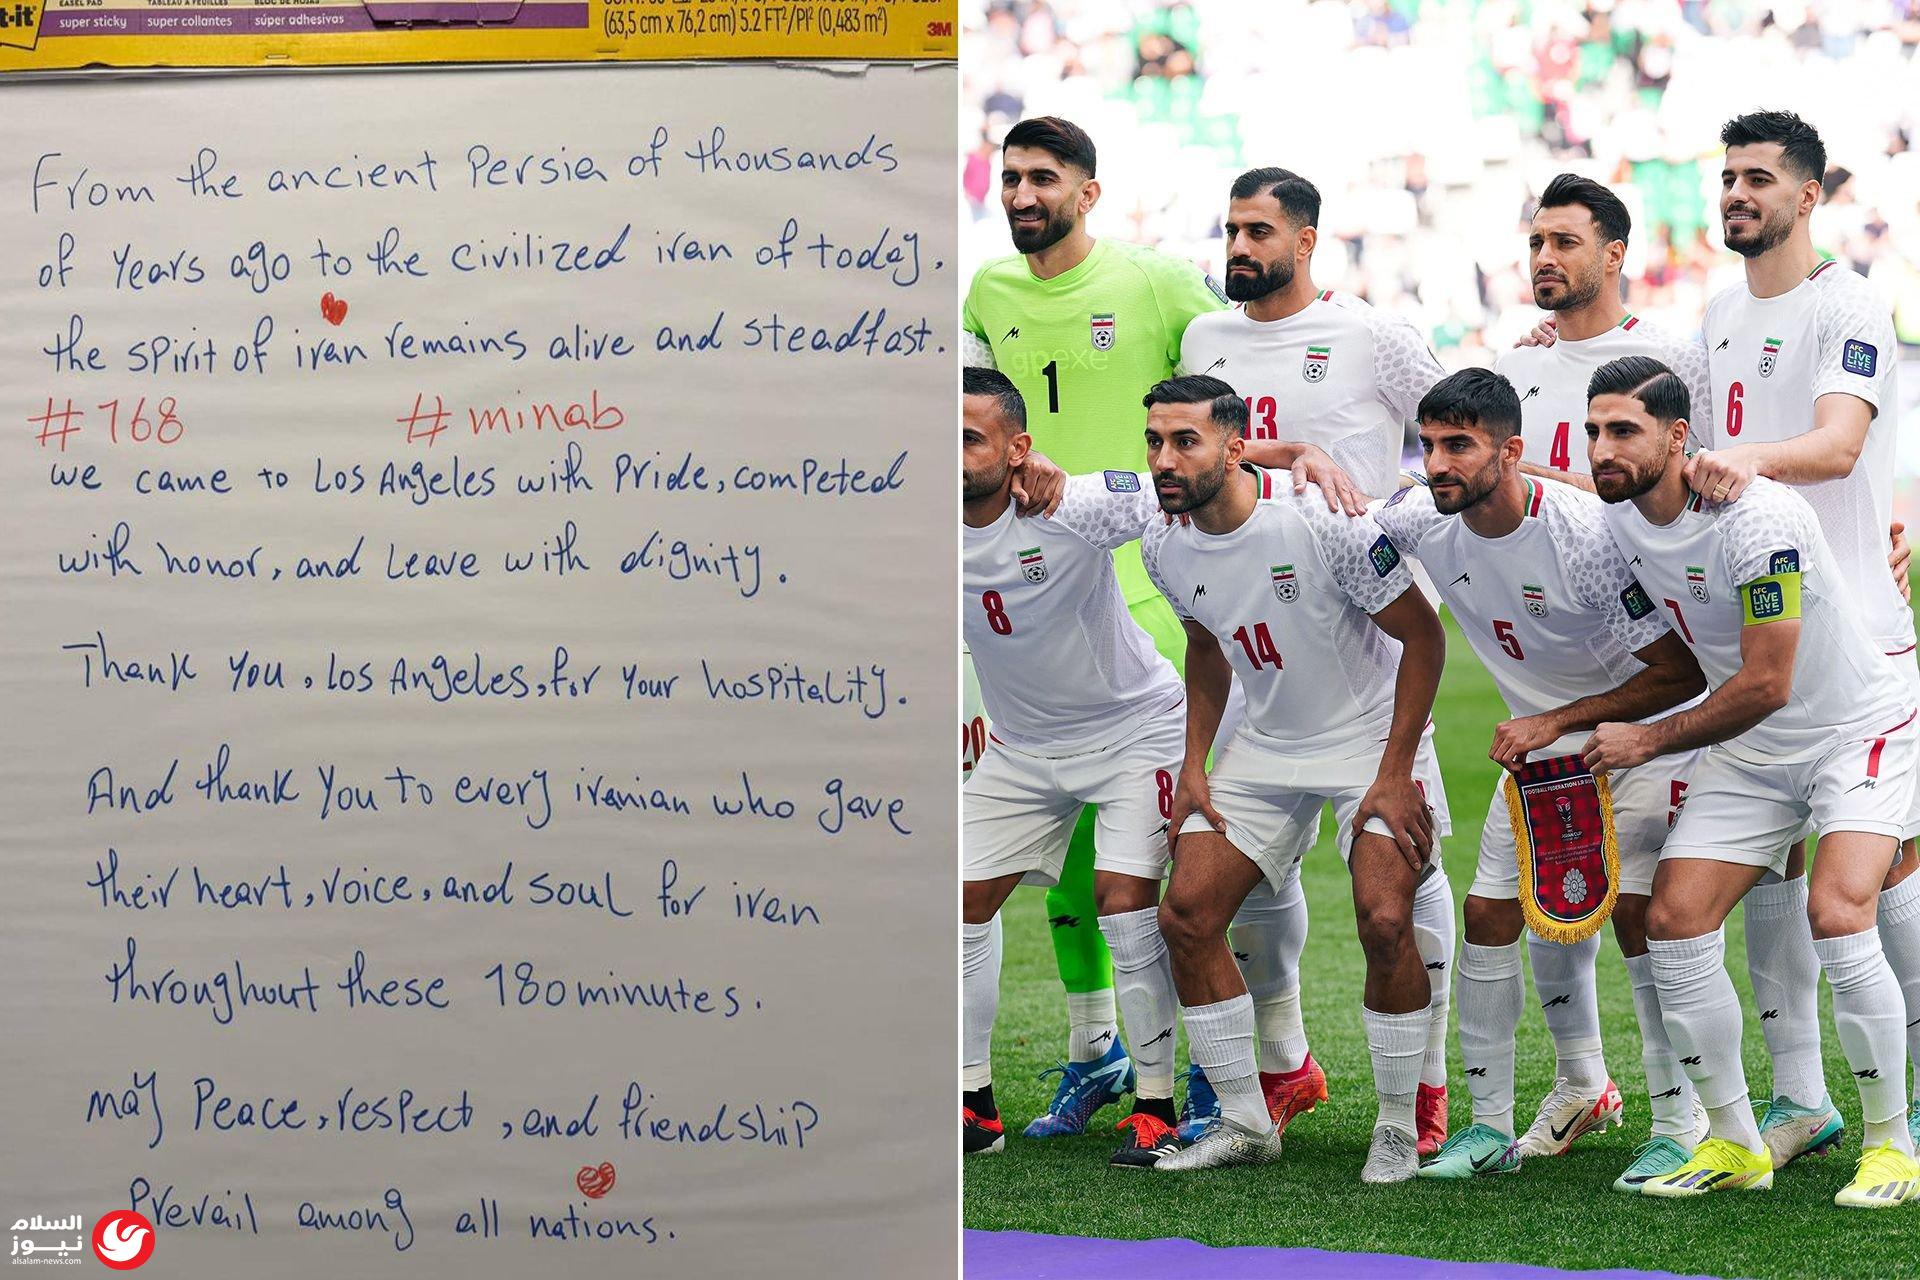 t-it
EASEL PAD TABLEAU À FEUILLES BLOC DE HOJAS
super sticky super collantes súper adhesivas
(63,5 cm x 76,2 cm) 5.2 FT²/PI² (0,483 m²)
3M
From the ancient Persia of thousands
of Years ago to the civilized iran of today.
the spirit of iran remains alive and steadfast.
#168 #minab
we came to Los Angeles with Pride, competed
with honor, and Leave with dignity.
Thank you, Los Angeles, for your hospitality.
And thank you to every iranian who gave
their heart, voice, and soul for iran
throughout these 180 minutes.
may Peace, respect, and friendship
Prevail among all nations.
السلام
نيوز
alsalam-news.com
gpexe
1
13
4
6
AFC
LIVE
LIVE
8
14
5
7
AFC
LIVE
AFC
LIVE
20
8
5
7
FOOTBALL FEDERATION I.R IRAN
ASIAN CUP